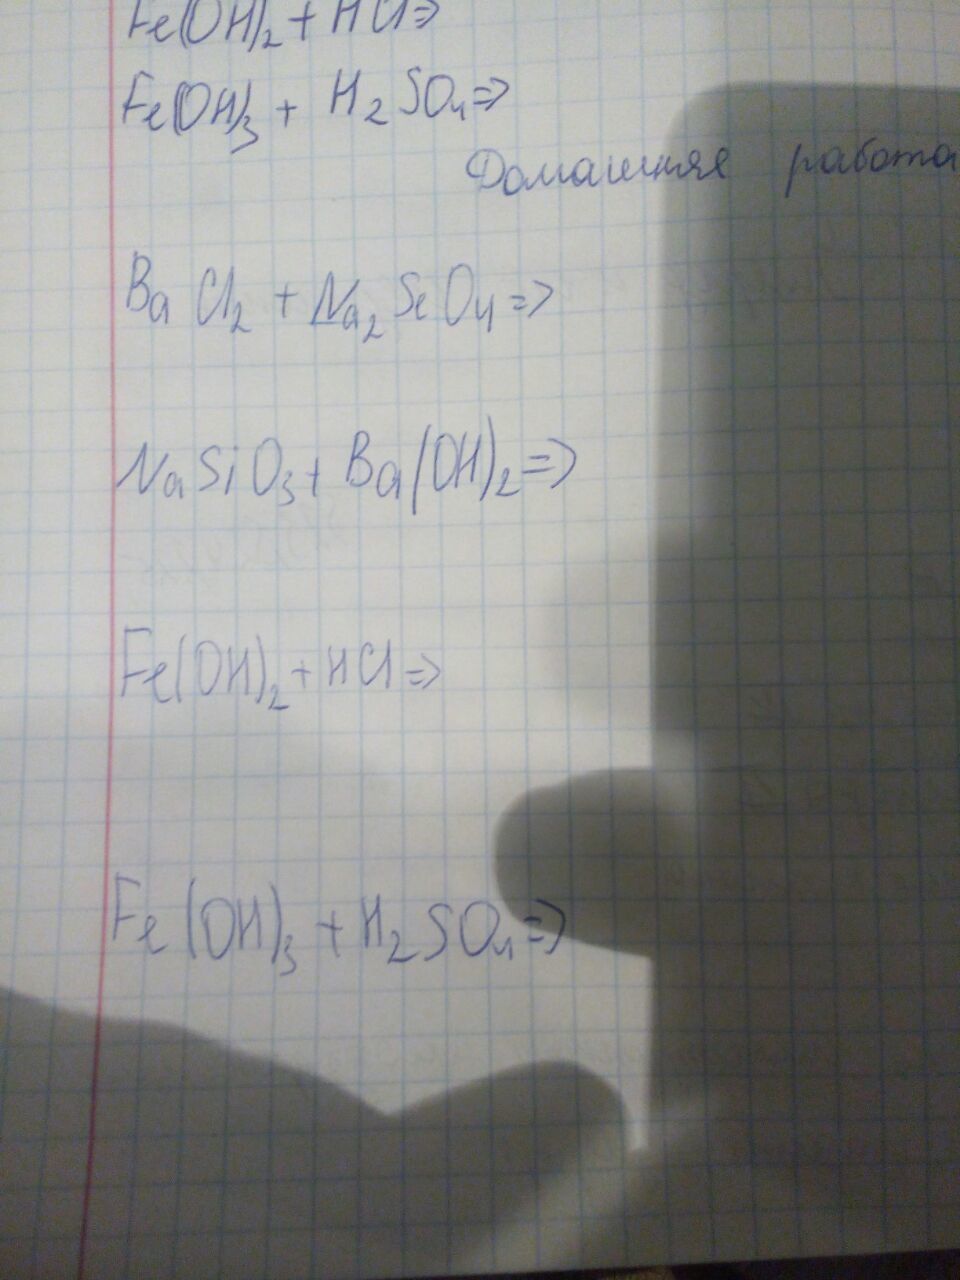 Fe(OH)₂ + HCl ⇒
Fe(OH)₃ + H₂SO₄ ⇒
Домашняя работа
BaCl₂ + Na₂SeO₄ ⇒
NaSiO₃ + Ba(OH)₂ ⇒
Fe(OH)₂ + HCl ⇒
Fe(OH)₃ + H₂SO₄ ⇒